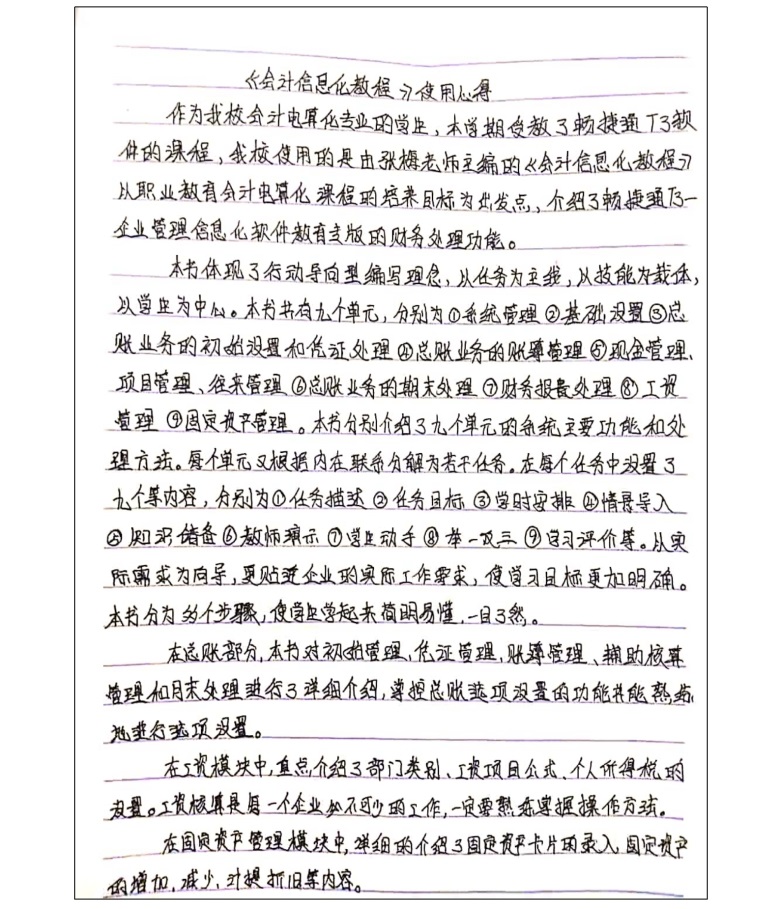 《会计信息化教程》使用心得
作为我校会计电算化专业的学生，本学期受教了畅捷通T3软
件的课程，我校使用的是由张梅老师主编的《会计信息化教程》
以职业教育会计电算化课程的培养目标为出发点，介绍了畅捷通T3—
企业管理信息化软件教育专版的财务处理功能。
本书体现了行动导向型编写理念，以任务为主线，以技能为载体，
以学生为中心。本书共有九个单元，分别为①系统管理②基础设置③总
账业务的初始设置和凭证处理④总账业务的账簿管理⑤现金管理、
项目管理、往来管理⑥总账业务的期末处理⑦财务报表处理⑧工资
管理⑨固定资产管理。本书分别介绍了九个单元的系统主要功能和处
理方法。每个单元又根据内在联系分解为若干任务。在每个任务中设置了
九个等内容，分别为①任务描述②任务目标③学时安排④情景导入
⑤知识储备⑥教师演示⑦学生动手⑧举一反三⑨学习评价等。从实
际需求为向导，更贴近企业的实际工作要求，使学习目标更加明确。
本书分为多个步骤，使学生学起来简明易懂，一目了然。
在总账部分，本书对初始管理、凭证管理、账簿管理、辅助核算
管理和月末处理进行了详细介绍，掌握总账选项设置的功能并能熟练
地进行选项设置。
在工资模块中，重点介绍了部门类别、工资项目公式、个人所得税的
设置。工资核算是每一个企业必不可少的工作，一定要熟练掌握操作方法。
在固定资产管理模块中，详细的介绍了固定资产卡片的录入，固定资产
的增加，减少，计提折旧等内容。